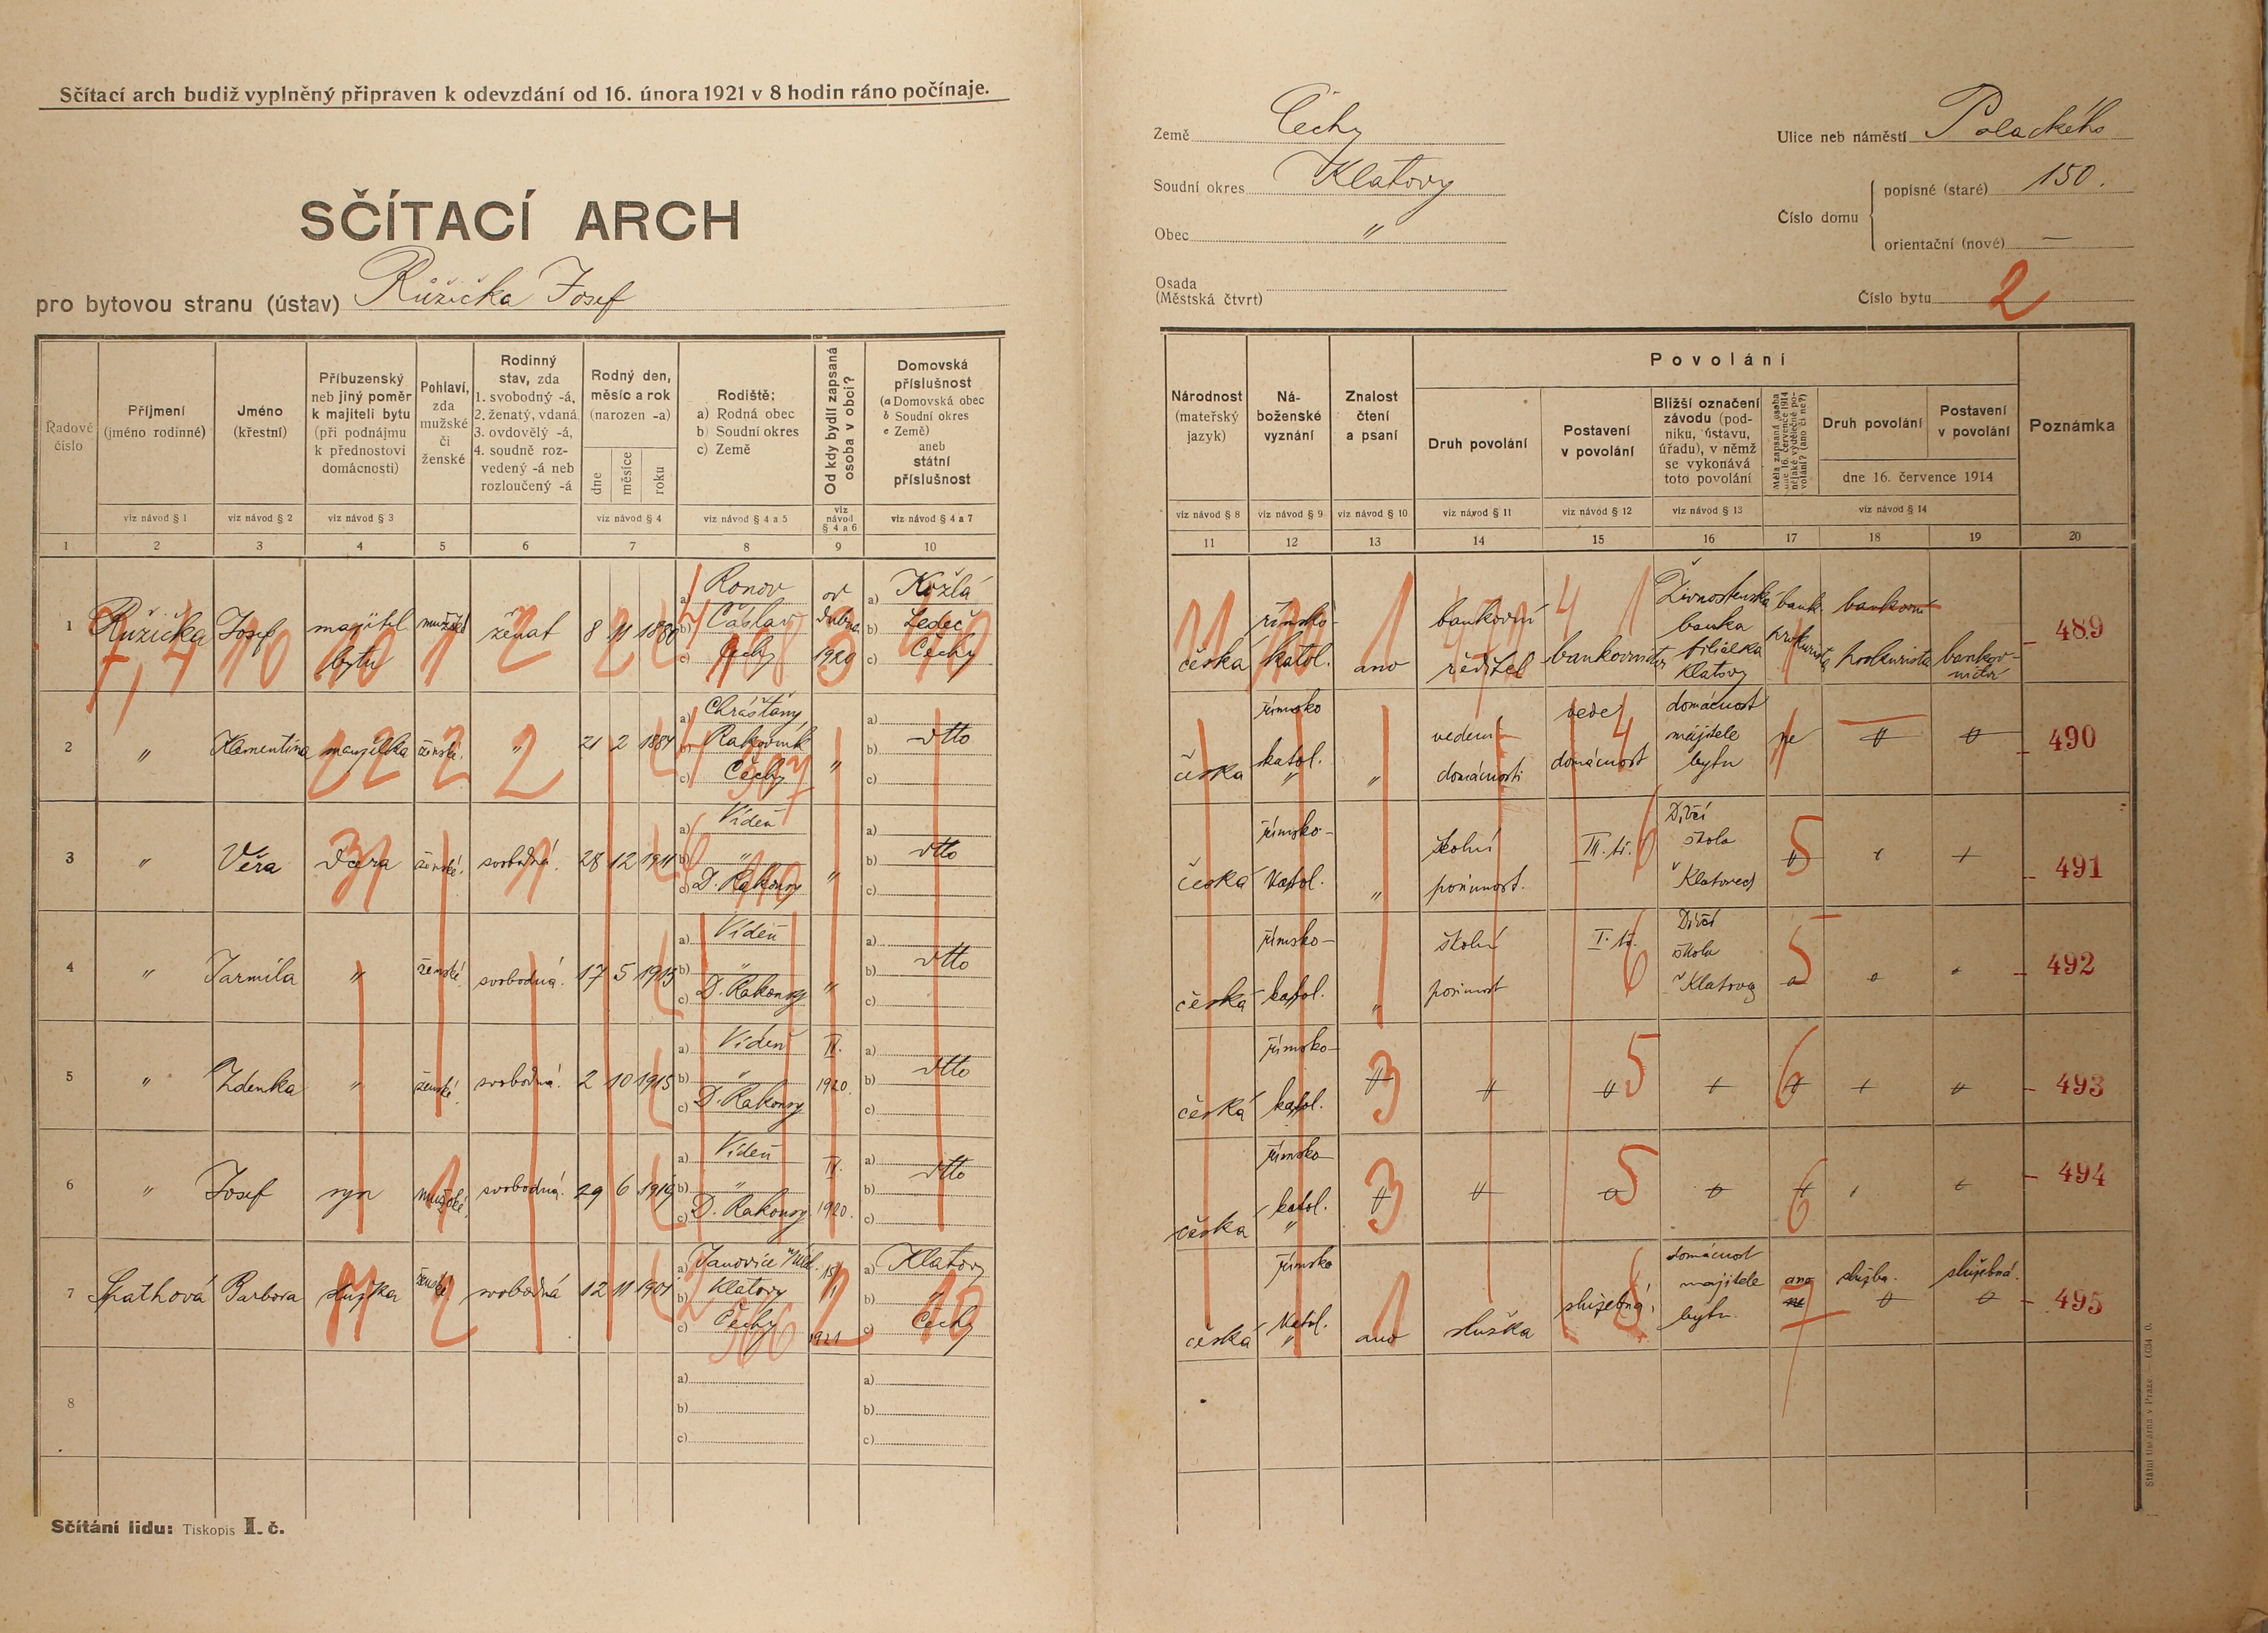 Sčítací arch budiž vyplněný připraven k odevzdání od 16. února 1921 v 8 hodin ráno počínaje.
SČÍTACÍ ARCH
pro bytovou stranu (ústav) Růžička Josef
Země Čechy
Soudní okres Klatovy
Obec "
Osada
(Městská čtvrt)
Ulice neb náměstí Palackého
Číslo domu
popisné (staré) 150.
orientační (nové) —
Číslo bytu 2
Řadové číslo
Příjmení (jméno rodinné)
Jméno (křestní)
Příbuzenský neb jiný poměr k majiteli bytu (při podnájmu k přednostovi domácnosti)
Pohlaví, zda mužské či ženské
Rodinný stav, zda 1. svobodný -á, 2. ženatý, vdaná 3. ovdovělý -á, 4. soudně rozvedený -á neb rozloučený -á
Rodný den, měsíc a rok (narozen -a)
dne měsíce roku
Rodiště: a) Rodná obec b) Soudní okres c) Země
Od kdy bydlí zapsaná osoba v obci?
Domovská příslušnost (a Domovská obec b Soudní okres c Země) aneb státní příslušnost
viz návod § 1 viz návod § 2 viz návod § 3 viz návod § 4 viz návod § 4 a 5 viz návod § 4 a 6 viz návod § 4 a 7
1 2 3 4 5 6 7 8 9 10
Národnost (mateřský jazyk)
Náboženské vyznání
Znalost čtení a psaní
Povolání
Druh povolání
Postavení v povolání
Bližší označení závodu (podniku, ústavu, úřadu), v němž se vykonává toto povolání
Měla zapsaná osoba dne 16. července 1914 nějaké výdělečné povolání? (ano či ne?)
Druh povolání
Postavení v povolání
dne 16. července 1914
Poznámka
viz návod § 8 viz návod § 9 viz návod § 10 viz návod § 11 viz návod § 12 viz návod § 13 viz návod § 14
11 12 13 14 15 16 17 18 19 20
1 Růžička Josef majitel bytu mužské ženat 8 11 1880 a) Ronov b) Čáslav c) Čechy od dubna 1920 a) Kožlá b) Ledeč c) Čechy
česká římsko-katol. ano bankovní ředitel Živnostenská banka filiálka Klatovy bank. prokurista bankovní prokurista 489
2 " Klementina manželka ženské " 21 2 1884 a) Chrášťany b) Rakovník c) Čechy " a) b) dtto c)
česká římsko katol. " " vedení domácnosti vede domácnost domácnost majitele bytu ne 490
3 " Věra dcera ženské. svobodná. 28 12 1911 a) Vídeň b) " c) D. Rakousy " a) b) dtto c)
česká římsko-katol. " školní povinnost. III. tř. Dívčí škola v Klatovech 5 491
4 " Jarmila " ženské svobodná. 17 5 1913 a) Vídeň b) " c) D. Rakousy " a) b) dtto c)
česká římsko-katol. " školní povinnost I. tř. Dívčí škola v Klatovy 5 492
5 " Zdenka " ženské. svobodná. 2 10 1915 a) Vídeň b) " c) D. Rakousy IV. 1920. a) b) dtto c)
česká římsko-katol. 3 5 6 493
6 " Josef syn mužské. svobodná. 29 6 1919 a) Vídeň b) " c) D. Rakousy IV. 1920. a) b) dtto c)
česká římsko-katol. " 3 5 6 494
7 Barbora služka ženské svobodná 12 11 1901 a) Janovice b) Klatovy c) Čechy 15/1 1921 a) Klatovy b) " c) Čechy
česká římsko katol. " ano služka služebná. domácnost majitele bytu. ano služba. služebná. 495
8 a) b) c) a) b) c)
Sčítání lidu: Tiskopis I. č.
Státní tiskárna v Praze.